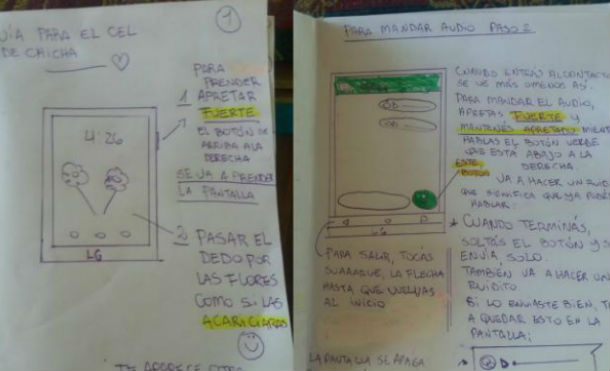 UÍA PARA EL CEL
DE CHICHA
1
PARA
PRENDER
1 APRETAR
FUERTE
EL BOTÓN DE
ARRIBA A LA
DERECHA
SE VA A PRENDER
LA PANTALLA
4:26
LG
2 PASAR EL
DEDO POR
LAS FLORES
COMO SI LAS
ACARICIARAS
TE APARECE
PARA MANDAR AUDIO PASO 2
CUANDO ENTRÁS AL CONTACTO
SE VE MÁS O MENOS ASÍ.
PARA MANDAR EL AUDIO,
APRETAS FUERTE Y
MANTENÉS APRETADO MIENT
HABLAS EL BOTÓN VERDE
QUE ESTÁ ABAJO A LA
DERECHA.
ESTE
BOTÓN
VA A HACER UN RUID
QUE SIGNIFICA QUE YA PODÉS
HABLAR.
LG
* CUANDO TERMINÁS,
SOLTÁS EL BOTÓN Y SE
ENVÍA, SOLO.
TAMBIÉN VA A HACER UN
RUIDITO.
SI LO ENVIASTE BIEN, TE
A QUEDAR ESTO EN LA
PANTALLA:
PARA SALIR, TOCÁS
SUAAAAVE, LA FLECHA
HASTA QUE VUELVAS
AL INICIO
LA PANTALLA SE APAGA